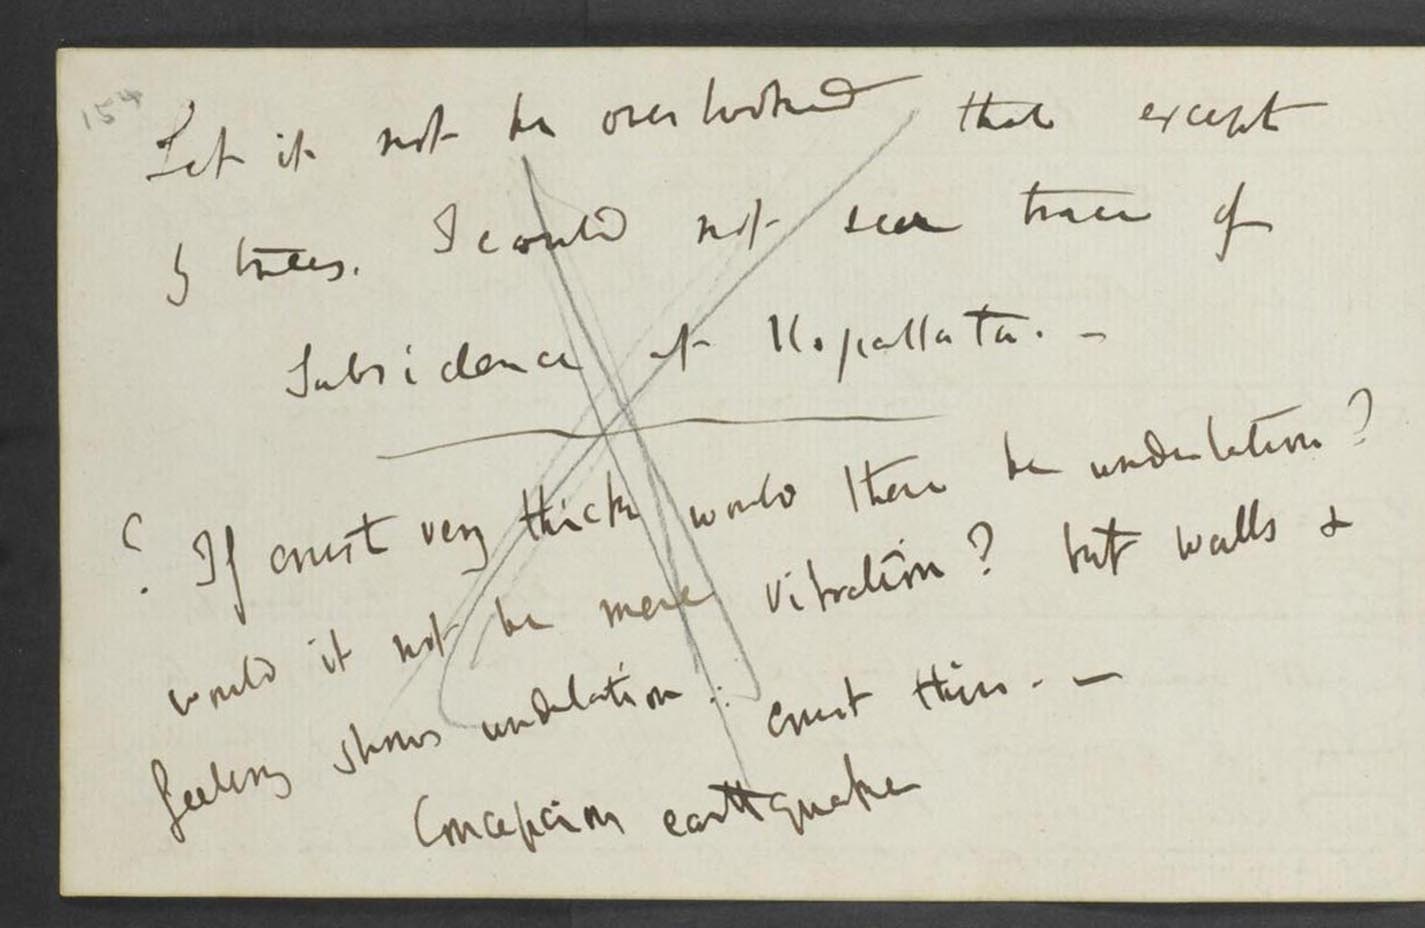 154
Let it not be overlooked that except
by trees. I could not see trace of
Subsidence at Uspallata. —
? If crust very thick would there be undulation?
would it not be mere vibration? but walls &
feeling shows undulation ∴ crust thin. —
Concepcion earthquake